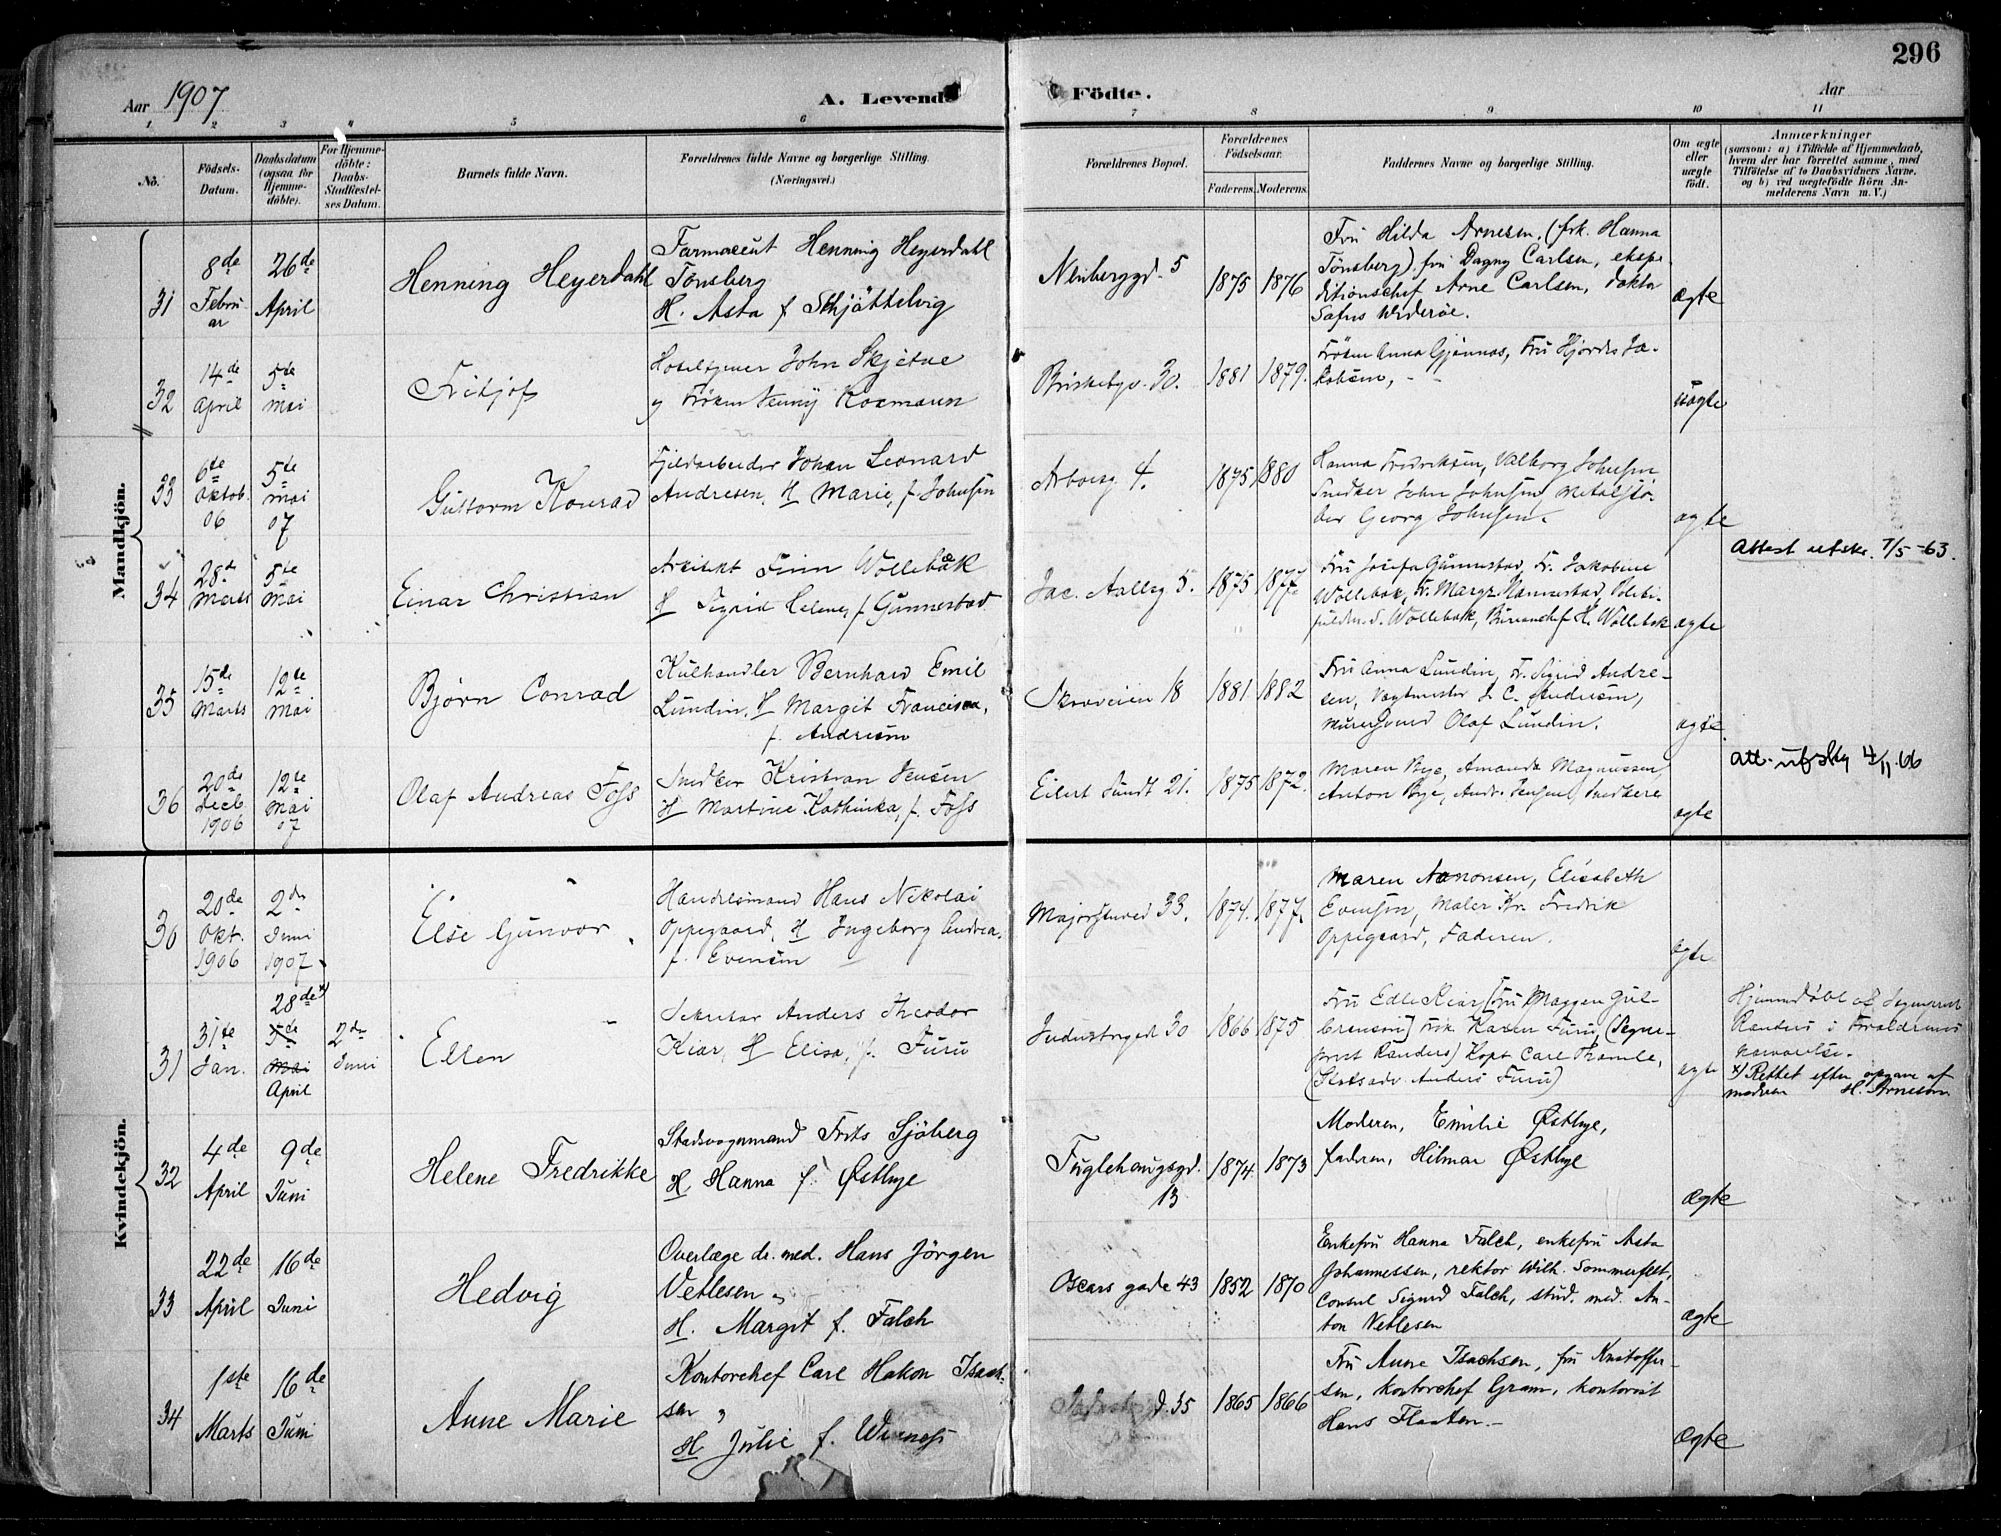 296
Aar 1907
A. Levende
Födte.
Aar
1 2 3 4 5 6 7 8 9 10 11
No.
Födsels-
Datum.
Daabsdatum
(ogsaa for
Hjemme-
döbte).
For Hjemme-
döbte:
Daabs-
Stadfæstel-
ses Datum.
Barnets fulde Navn.
Forældrenes fulde Navne og borgerlige Stilling.
(Næringsvei.)
Forældrenes Bopæl.
Forældrenes
Födselsaar.
Faderens. Moderens.
Faddernes Navne og borgerlige Stilling.
Om ægte
eller
uægte
födt.
Anmærkninger
(saasom: a) i Tilfælde af Hjemmedaab,
hvem der har forrettet samme, med
Tilföielse af to Daabsvidners Navne,
og b) ved uægtefödte Börn An-
melderens Navn m. V.)
Mandkjön.
31
8de
Febru
ar
26de
April
Henning Heyerdahl
Farmaceut Henning Heyerdahl
Tönsberg
H. Asta f Skjöttelvig
Neuberggd. 5
1875
1876
Fru Hilda Arnesen, (frk. Hanna
Tönsberg) fru Dagny Carlsen, ekspe
ditionschef Arne Carlsen, doktor
Sofus Widerøe.
ægte
32
14de
April
5te
Mai
Fritjof
John Skjetne
Briskebyv. 30.
1881
1879.
Frøken Anna Gjønnas, Fru Hjørdis Ja-
kobsen, - -
uægte
33
6te
Oktob.
06
5te
Mai
07
Guttorm Konrad
Johan Leonard
Andresen, H Marie, f. Johnsen
4.
1875
1880
Hanna Fredriksen, Valborg Johnsen
Snedker John Johnsen, Metalstø-
ber Georg Johnsen.
ægte
34
28de
Marts
5te
Mai
Einar Christian
Arkitekt Finn Wollebæk
H Sigrid Helene, f. Gunnestad
Jac. Aallsg 5.
1875
1877
Fru Josefa Gunnestad, Fr. Jakobine
Wollebæk, Fr. Margr. Mannestad, Politi-
fuldm. S. Wollebæk, Bureauchef H. Wollebæk
ægte
Attest utskr. 7/5-63.
35
15de
Marts
12te
Mai
Björn Conrad
Kulhandler Bernhard Emil
Lundin, H Margit Francisca,
f. Andresen
Skovveien 18
1881
1882
Fru Anna Lundin, Fr. Sigrid Andre-
sen, Vagtmester J. C. Andresen,
Murersvend Olaf Lundin.
ægte
36
20de
Decb
1906
12te
Mai
07
Olaf Andreas Foss
Snedker Kristian Jensen
H Martine Kathinka, f. Foss
Eilert Sundt 21.
1875
1872.
Maren Bye, Amanda Magnussen,
Anton Bye, Andr. Jensen, Snedkere
ægte
Att. utskr 4/11.66
Kvindekjön.
30
20de
Okt.
1906
2den
Juni
1907
Else Gunvor
Handelsmand Hans Nikolai
Oppegaard, H Ingeborg Andrea,
f. Evensen
Majorstuved 33.
1874.
1877.
Maren Aanonsen, Elisabeth
Evensen, Maler Kr. Fredrik
Oppegaard, Faderen.
ægte
31
31te
Jan.
28de x)
5de
Mai
April
2den
Juni
Ellen
Sekretær Anders Theodor
Kiær, H Elisa, f. Furu
Industriged 30
1866
1875
Fru Edle Kiær (Fru Maggen Gul-
brensen) Frk. Karen Furu, (Sogne-
prest Randers) Kapt Carl Thamle,
(Statsadv Anders Furu)
ægte
Hjemmedøbt af Sogneprest
Randers i Forældrenes
nærværelse.
x) Rettet efter opgave af
moderen H. Arnesen
32
4de
April
9de
Juni
Helene Fredrikke
Stadsvognmand Frits Sjöberg
H Hanna f. Østbye
Fuglehaugsgd.
13
1874
1873
Moderen, Emilie Østbye,
faderen, Hilmar Østbye
ægte
33
22de
April
16de
Juni
Hedvig
Overlæge dr. med. Hans Jörgen
Vetlesen,
H. Margit f. Falch
Oscars gade 43
1852
1870
Enkefru Hanna Falch, enkefru Asta
Johannessen, rektor Wilh. Sommerfelt,
Consul Sigurd Falch, stud. med. An-
ton Vetlesen
ægte
34
1ste
Marts
16de
Juni
Anne Marie
Kontorchef Carl Hakon Isach-
sen,
H Julie f. Winness
35
1865
1866
Fru Anne Isachsen, fru Kristoffer-
sen, kontorchef Gram, kontorist
Hans Flaaten.-
ægte